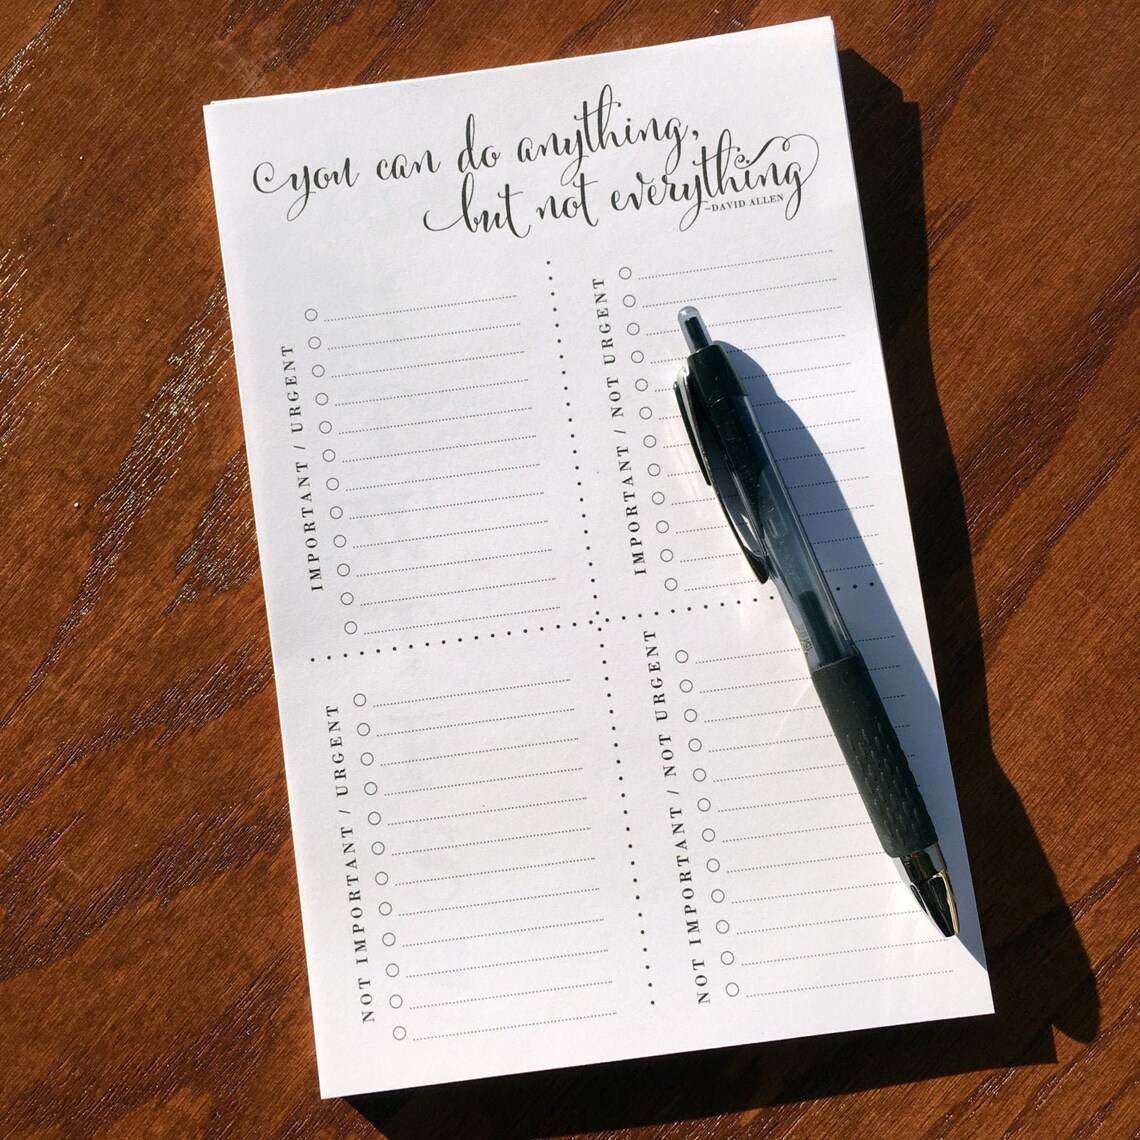 you can do anything,
but not everything
~DAVID ALLEN
IMPORTANT / URGENT
IMPORTANT / NOT URGENT
NOT IMPORTANT / URGENT
NOT IMPORTANT / NOT URGENT